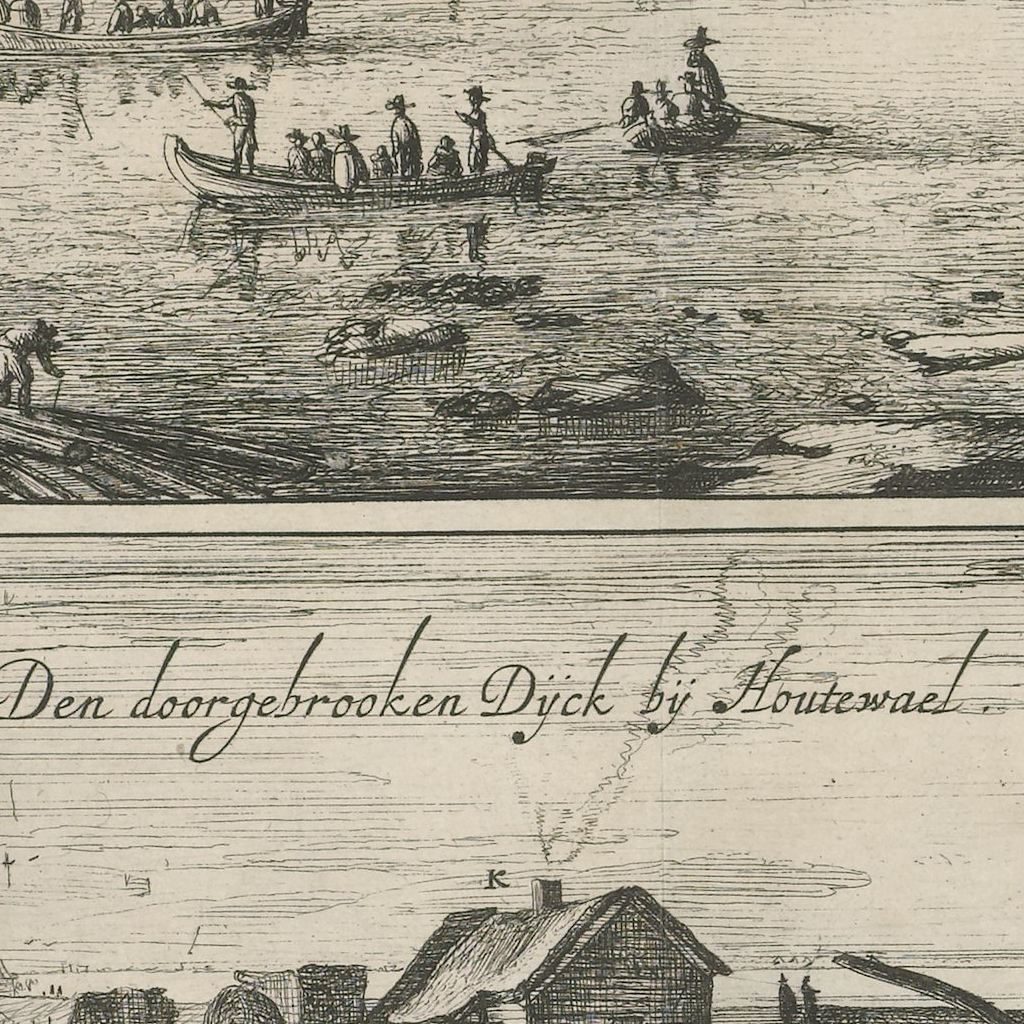 Den doorgebrooken Dÿck bÿ Houtewael.
K